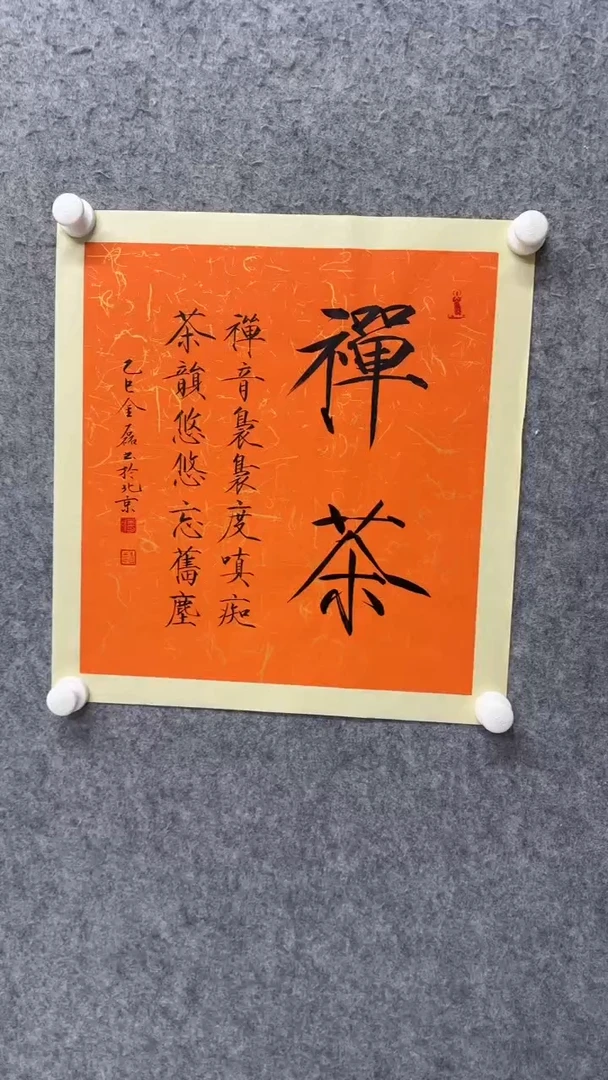 禪茶
禪音裊裊度嗔痴
茶韻悠悠忘舊塵
乙巳金磊書於北京